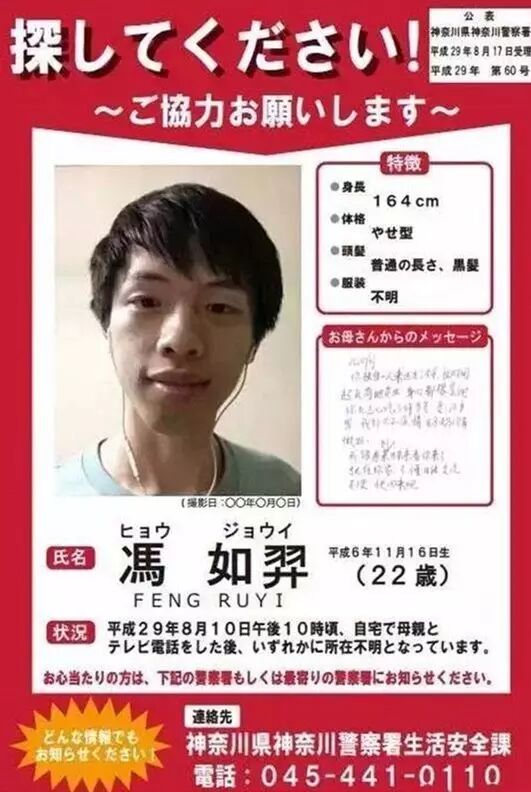 公表
神奈川県神奈川警察署
平成29年8月17日受理
平成29年 第60号
探してください!
～ご協力お願いします～
特徴
●身長
164cm
●体格
やせ型
●頭髪
普通の長さ、黒髪
●服装
不明
お母さんからのメッセージ
(撮影日:○○年○月○日)
ヒョウ ジョウイ
氏名
馮 如羿
平成6年11月16日生
(22歳)
FENG RUYI
状況
平成29年8月10日午後10時頃、自宅で母親と
テレビ電話をした後、いずれかに所在不明となっています。
お心当たりの方は、下記の警察署もしくは最寄りの警察署にお知らせください。
どんな情報でも
お知らせください!
連絡先
神奈川県神奈川警察署生活安全課
電話:045-441-0110